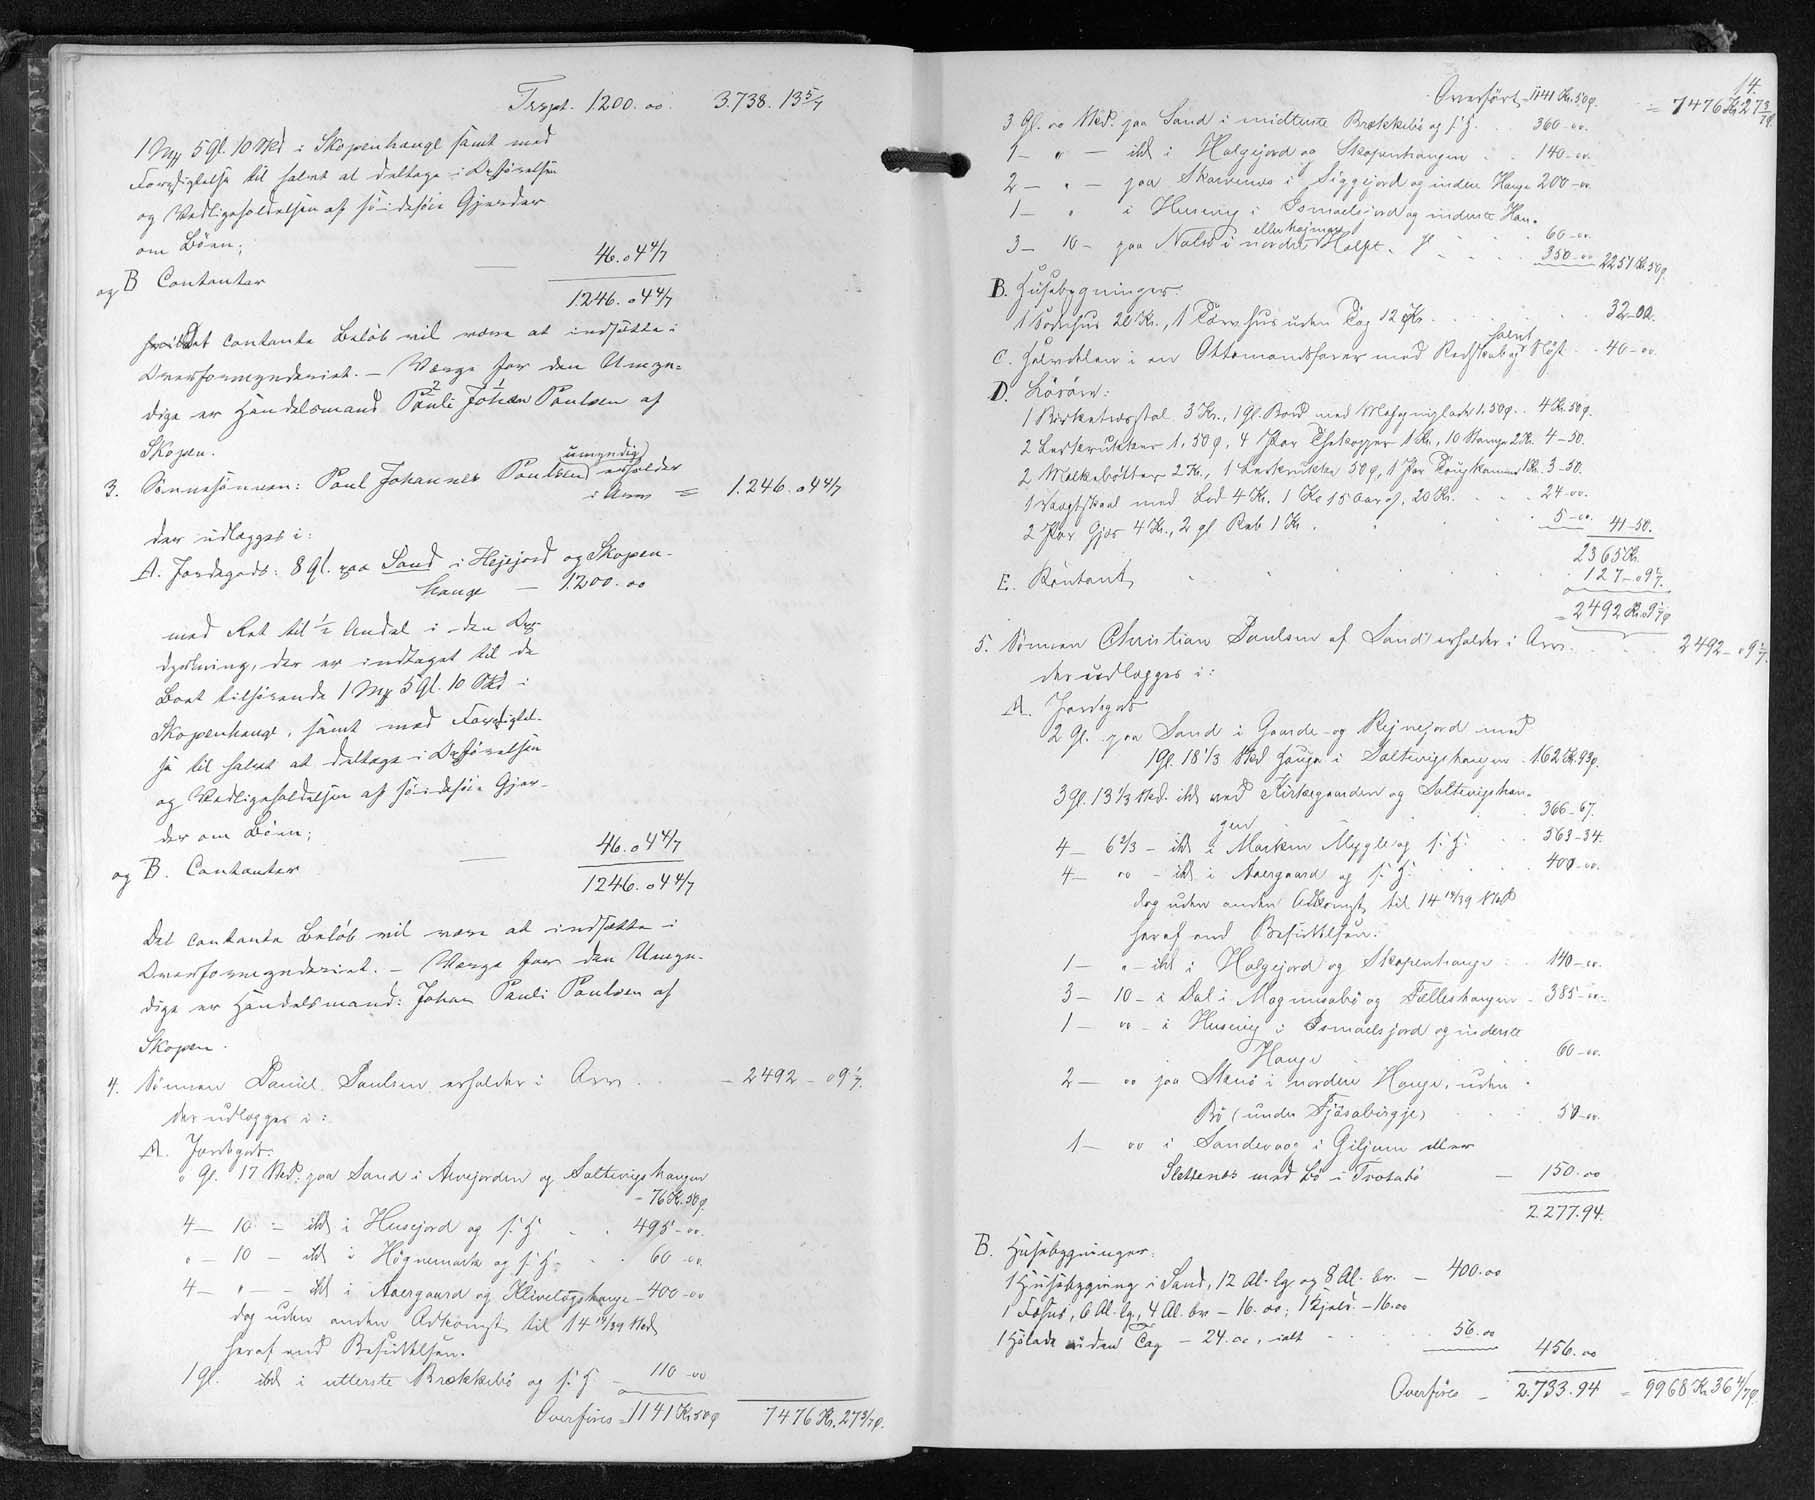 Trspt. 1200. oo. 3.738. 13 5/7
1 Mk 5 Gl. 10 Skd i Skopenhauge samt med
Forpligtelse til halvt at deltage i Opførelsen
og Vedligeholdelsen af Gjerder
om Bøen;
og B Contanter — 46. o4 4/7
1.246. o4 4/7
Det contante Beløb vil være at indsætte i
Overformynderiet. — Værge for den Umyn-
dige er Handelsmand Pauli Johan Poulsen af
Skopen.
umyndig
3. Sønnesønnen: Poul Johannes Poulsen erholder
i Arv = 1.246. o4 4/7
der udlægges i:
A. Jordegods: 8 Gl. paa Sand i Hejejord og Skopen-
hauge — 1200. oo
med Ret til 1/2 Andel i den Op-
dyrkning, der er indtaget til de
Boet tilhørende 1 Mk 5 Gl. 10 Skd i
Skopenhauge, samt med Forpligtel-
se til halvt at deltage i Opførelsen
og Vedligeholdelsen af Gjer-
der om Bøen;
og B. Contanter — 46. o4 4/7
1246. o4 4/7
Det contante Beløb vil være at indsætte i
Overformynderiet. — Værge for den Umyn-
dige er Handelsmand: Johan Pauli Poulsen af
Skopen.
4. Sønnen Daniel Poulsen erholder i Arv . . - 2492 - o9 1/7.
der udlægges i:
A. Jordegods.
o Gl. 17 Skd. paa Sand i Arvejorden og Saltvigshaugen
- 76 Kr. 50 Ø.
4 — 10 — ibd i Husejord og s. H. . . 495 - oo.
o — 10 — ibd i Høgnemark og s. H. . . 60 - oo.
4 — o — ibd i Aaergaard og Klivelogshauge - 400 - oo
dog uden anden Adkomst til 14 14/39 Skd
heraf end Besiddelsen.
1 Gl. ibd i utterste Brækkebø og s. H — 110 - oo
Overføres = 1141 Kr. 50 Ø 7476 Kr. 27 3/7 Ø.
14.
Overført 1141 Kr. 50 Ø. = 7476 Kr 27 3/7 Ø.
3 Gl. oo Skd. paa Sand i midterste Brækkebø og s. H. . . 360 - oo.
1 — o — ibd i Halgejord og Skopenhaugen . . 140 - oo.
2 — o — paa Skarvenes i Siggejord og indere Hauge 200 - oo.
1 — o i Husevig i Ismaelsjord og inderste Hau.
60 - oo.
eller højmar
3 — 10 — paa Nalsø i nordre Halft. . . . . 350 - oo 2251 Kr. 50 Ø.
B. Husebygninger.
1 Sodehus 20 Kr., 1 Tørvhus uden Tag 12 Kr. . . . . . . 32 - oo.
halvt
C. Halvdelen i en Ottemandsfarer med Redskab og Nøst . . 40 - oo.
D. Løsøre:
1 Birketræsstol 3 Kr., 1 Gl. Bord med Mahogniplade 1. 50 Ø. . 4 Kr. 50 Ø.
2 Lerkrukker 1. 50 Ø, 4 Par Thekopper 1 Kr., 10 Stænger 2 Kr. 4 - 50.
2 Melkebøtter 2 Kr., 1 Lerkrukke 50 Ø, 1 Par 1 Kr. 3 - 50.
1 Vægtskaal med Lod 4 Kr. 1 20 Kr. . . . 24 - oo.
2 Par 4 Kr., 2 gl Reb 1 Kr . . . . . 5 - oo. 41 - 50.
2365 Kr.
E. Kontant . . . . . 127 - o9 1/7.
= 2492 Kr. o9 1/7 Ø
5. Sønnen Christian Poulsen af Sand erholder i Arv. . . . 2492 - o9 1/7.
der udlægges i:
A. Jordegods
2 Gl. paa Sand i Gaarde- og Rejnejord med
1 Gl. 18 1/3 Skd Hauge i Saltvigshaugen . 162 Kr. 93 Ø.
3 Gl. 13 1/3 Skd. ibd ved Kirkegaarden og Saltvigshau-
gen . . 366 - 67.
4 — 6 2/3 — ibd i Marken Mygle og s. H. . . 563 - 34.
4 — oo — ibd i Aaergaard og s. H. . . . 400 - oo.
dog uden anden Adkomst til 14 14/39 Skd
heraf end Besiddelsen:
1 — o — ibd i Halgejord og Skopenhauge . . 140 - oo.
3 — 10 — i Dal i Magnusabø og Fælleshaugen - 385 - oo.
1 — oo — i Husevig i Ismaelsjord og inderste
Hauge . 60 - oo.
2 — oo paa Skuø i nordere Hauge, uden
Bø (under Fjösabirgje) . . . 50 - oo.
1 — oo i Sandevaag i Giljum eller
Slettenes med Bø i Trotabø — 150. oo
2.277.94.
B. Husebygninger:
1 Husebygning i Sand, 12 Al. lg og 8 Al. br. — 400. oo
1 Fæhus, 6 Al. lg, 4 Al. br — 16. oo; 1 Kjald. - 16. oo
1 Hølade uden Tag — 24. oo, ialt . . . 56. oo 456. oo
Overføres — 2.733.94 = 9968 Kr. 36 4/7 Ø.